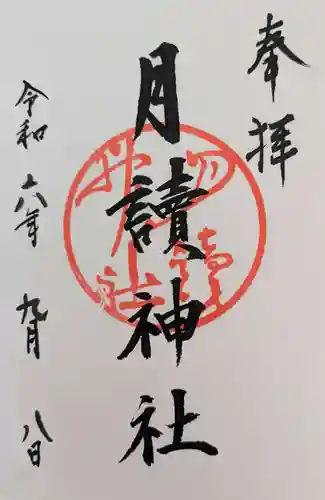 奉拝
月讀神社
令和六年九月八日